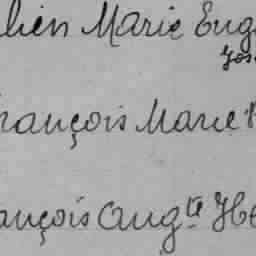 lien Marie Eug
Jos
rançois Marie
ançois Aug.te He